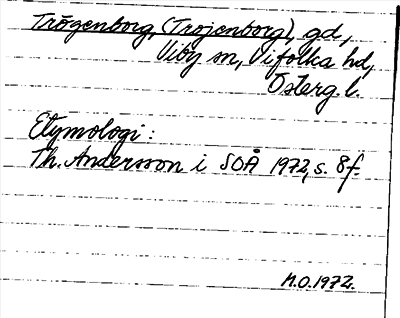 Trögenborg, (Trojenborg), gd,
Viby sn, Vifolka hd,
Österg. l.
Etymologi:
Th. Andersson i SOÅ 1972, s. 8 f.
M.O. 1972.